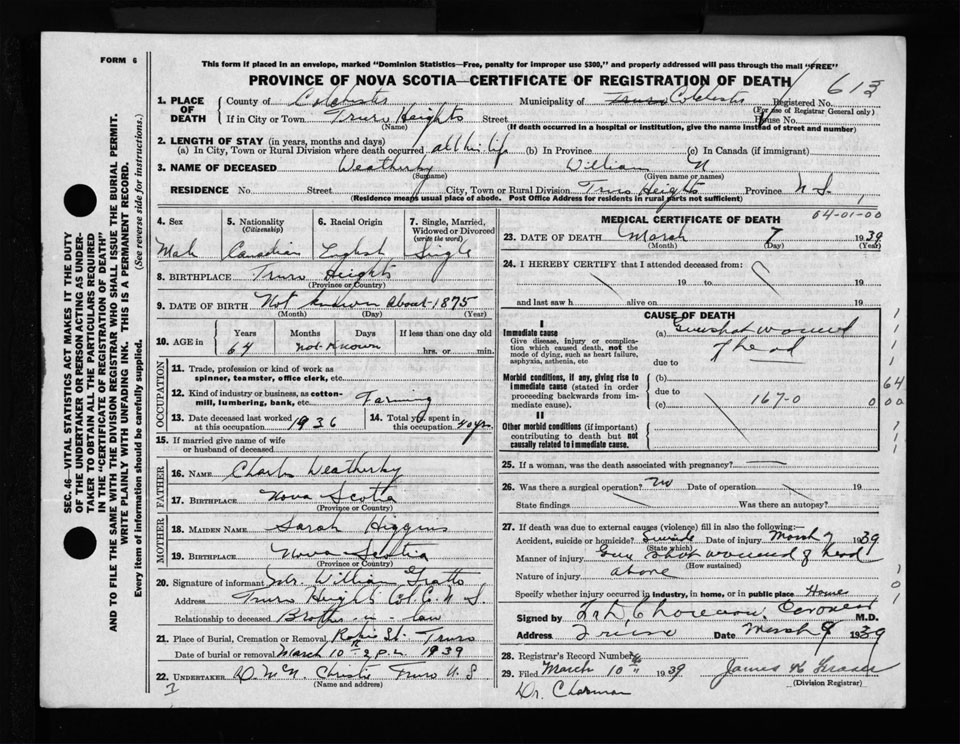 FORM 6
This form if placed in an envelope, marked "Dominion Statistics—Free, penalty for improper use $300," and properly addressed will pass through the mail "FREE"
PROVINCE OF NOVA SCOTIA—CERTIFICATE OF REGISTRATION OF DEATH
613
1. PLACE OF DEATH
County of Colchester Municipality of Truro Colchester Registered No.
(For use of Registrar General only)
If in City or Town Truro Heights Street House No.
(Name) (If death occurred in a hospital or institution, give the name instead of street and number)
2. LENGTH OF STAY (in years, months and days)
(a) In City, Town or Rural Division where death occurred all his life (b) In Province (c) In Canada (if immigrant)
3. NAME OF DECEASED Weatherby William N
(Surname) (Given name or names)
RESIDENCE No. Street City, Town or Rural Division Truro Heights Province N. S.
(Residence means usual place of abode. Post Office Address for residents in rural parts not sufficient)
4. Sex 5. Nationality (Citizenship) 6. Racial Origin 7. Single, Married, Widowed or Divorced (write the word)
Male Canadian English Single
8. BIRTHPLACE Truro Heights
(Province or Country)
9. DATE OF BIRTH Not Known About 1875
(Month) (Day) (Year)
10. AGE in Years Months Days If less than one day old
64 not known hrs. or min.
OCCUPATION
11. Trade, profession or kind of work as spinner, teamster, office clerk, etc.
12. Kind of industry or business, as cotton-mill, lumbering, bank, etc. Farming
13. Date deceased last worked at this occupation 1936 14. Total yrs spent in this occupation 40 yrs.
15. If married give name of wife or husband of deceased
FATHER
16. NAME Charles Weatherby
17. BIRTHPLACE Nova Scotia
(Province or Country)
MOTHER
18. MAIDEN NAME Sarah Higgins
19. BIRTHPLACE Nova Scotia
(Province or Country)
20. Signature of informant Mr. William Gratto
Address Truro Heights Col. C. N. S.
Relationship to deceased Brother-in-law
21. Place of Burial, Cremation or Removal Robie St. Truro
Date of burial or removal March 10th 2 p.m. 1939
22. UNDERTAKER D. McN. Christie Truro N. S
(Name and address)
MEDICAL CERTIFICATE OF DEATH
04-01-00
23. DATE OF DEATH March 7 1939
(Month) (Day) (Year)
24. I HEREBY CERTIFY that I attended deceased from
19 to 19
and last saw h alive on 19
CAUSE OF DEATH
I
Immediate cause (a) Gunshot wound of head
Give disease, injury or complication which caused death, not the mode of dying, such as heart failure, asphyxia, asthenia, etc
due to
Morbid conditions, if any, giving rise to immediate cause (stated in order proceeding backwards from immediate cause).
(b)
due to
(c) 167-0
64
0 00
II
Other morbid conditions (if important) contributing to death but not causally related to immediate cause.
25. If a woman, was the death associated with pregnancy?
26. Was there a surgical operation? No Date of operation 19
State findings Was there an autopsy?
27. If death was due to external causes (violence) fill in also the following:—
Accident, suicide or homicide? Suicide Date of injury March 7 1939
(State which)
Manner of injury Gun shot wound of head
(How sustained)
Nature of injury above
Specify whether injury occurred in industry, in home, or in public place Home
Signed by Coroner M.D.
Address Truro Date March 9 1939
28. Registrar's Record Number
29. Filed March 10th 1939 James K Fraser
(Division Registrar)
Dr. Charman
SEC. 46—VITAL STATISTICS ACT MAKES IT THE DUTY
OF THE UNDERTAKER OR PERSON ACTING AS UNDER-
TAKER TO OBTAIN ALL THE PARTICULARS REQUIRED
IN THE "CERTIFICATE OF REGISTRATION OF DEATH"
AND TO FILE THE SAME WITH THE DIVISION REGISTRAR WHO SHALL ISSUE THE BURIAL PERMIT.
WRITE PLAINLY WITH UNFADING INK. THIS IS A PERMANENT RECORD.
Every item of information should be carefully supplied. (See reverse side for instructions.)